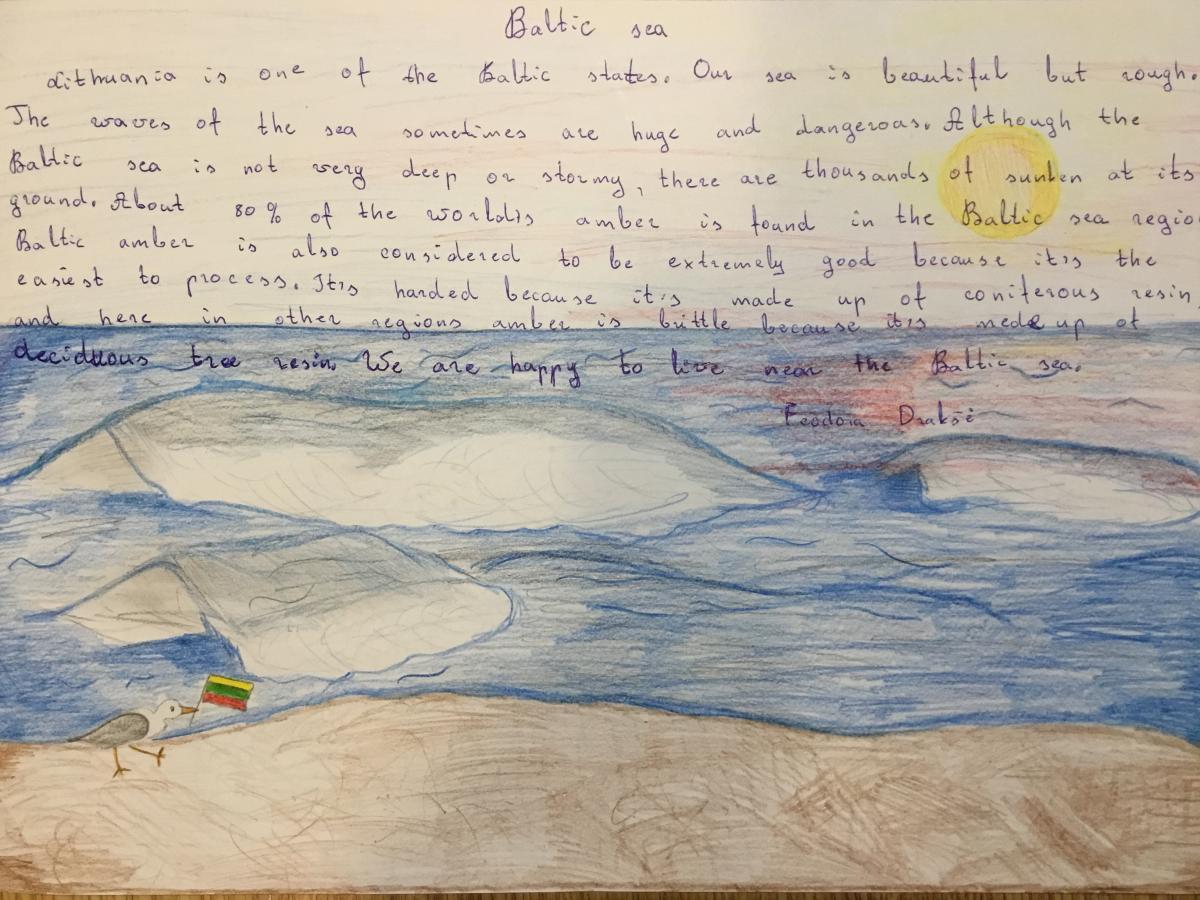 Baltic sea
Lithuania is one of the Baltic states. Our sea is beautiful but rough.
The waves of the sea sometimes are huge and dangerous. Although the
Baltic sea is not very deep or stormy, there are thousands of sunken at its
ground. About 80% of the world's amber is found in the Baltic sea regio
Baltic amber is also considered to be extremely good because it's the
easiest to process. It's harded because it's made up of coniferous resin
and here in other regions amber is brittle because it's made up of
deciduous tree resin. We are happy to live near the Baltic sea.
Feodora Drakšė